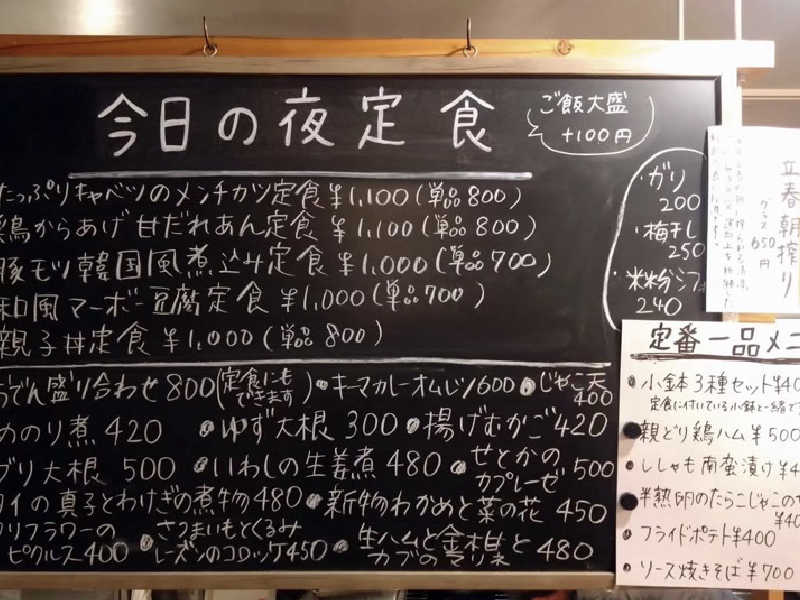 今日の夜定食
ご飯大盛
+100円
たっぷりキャベツのメンチカツ定食 ¥1,100(単品800)
鶏からあげ 甘だれあん定食 ¥1,100(単品800)
豚モツ韓国風煮込み定食 ¥1,000(単品700)
和風マーボー豆腐定食 ¥1,000(単品700)
親子丼定食 ¥1,000(単品800)
・ガリ
200
・梅干し
250
・米粉シフォ
240
おでん盛り合わせ800(定食にもできます)・キーマカレーオムレツ600・じゃこ天400
のり煮 420 ・ゆず大根 300 ・揚げむかご420
ブリ大根 500 ・いわしの生姜煮 480 ・せとかのカプレーゼ500
タイの真子とわけぎの煮物480・新物わかめと菜の花 450
カリフラワーのピクルス400・さつまいもとくるみレーズンのコロッケ450・生ハムと金柑とカブのマリネ480
立春朝搾り
グラス
650円
定番一品メニ
・小鉢3種セット¥40
定食に付いている小鉢と一緒で
・親どり鶏ハム ¥500
・ししゃも南蛮漬け¥4
・半熟卵のたらこじゃこの
¥40
・フライドポテト¥400
・ソース焼きそば¥700